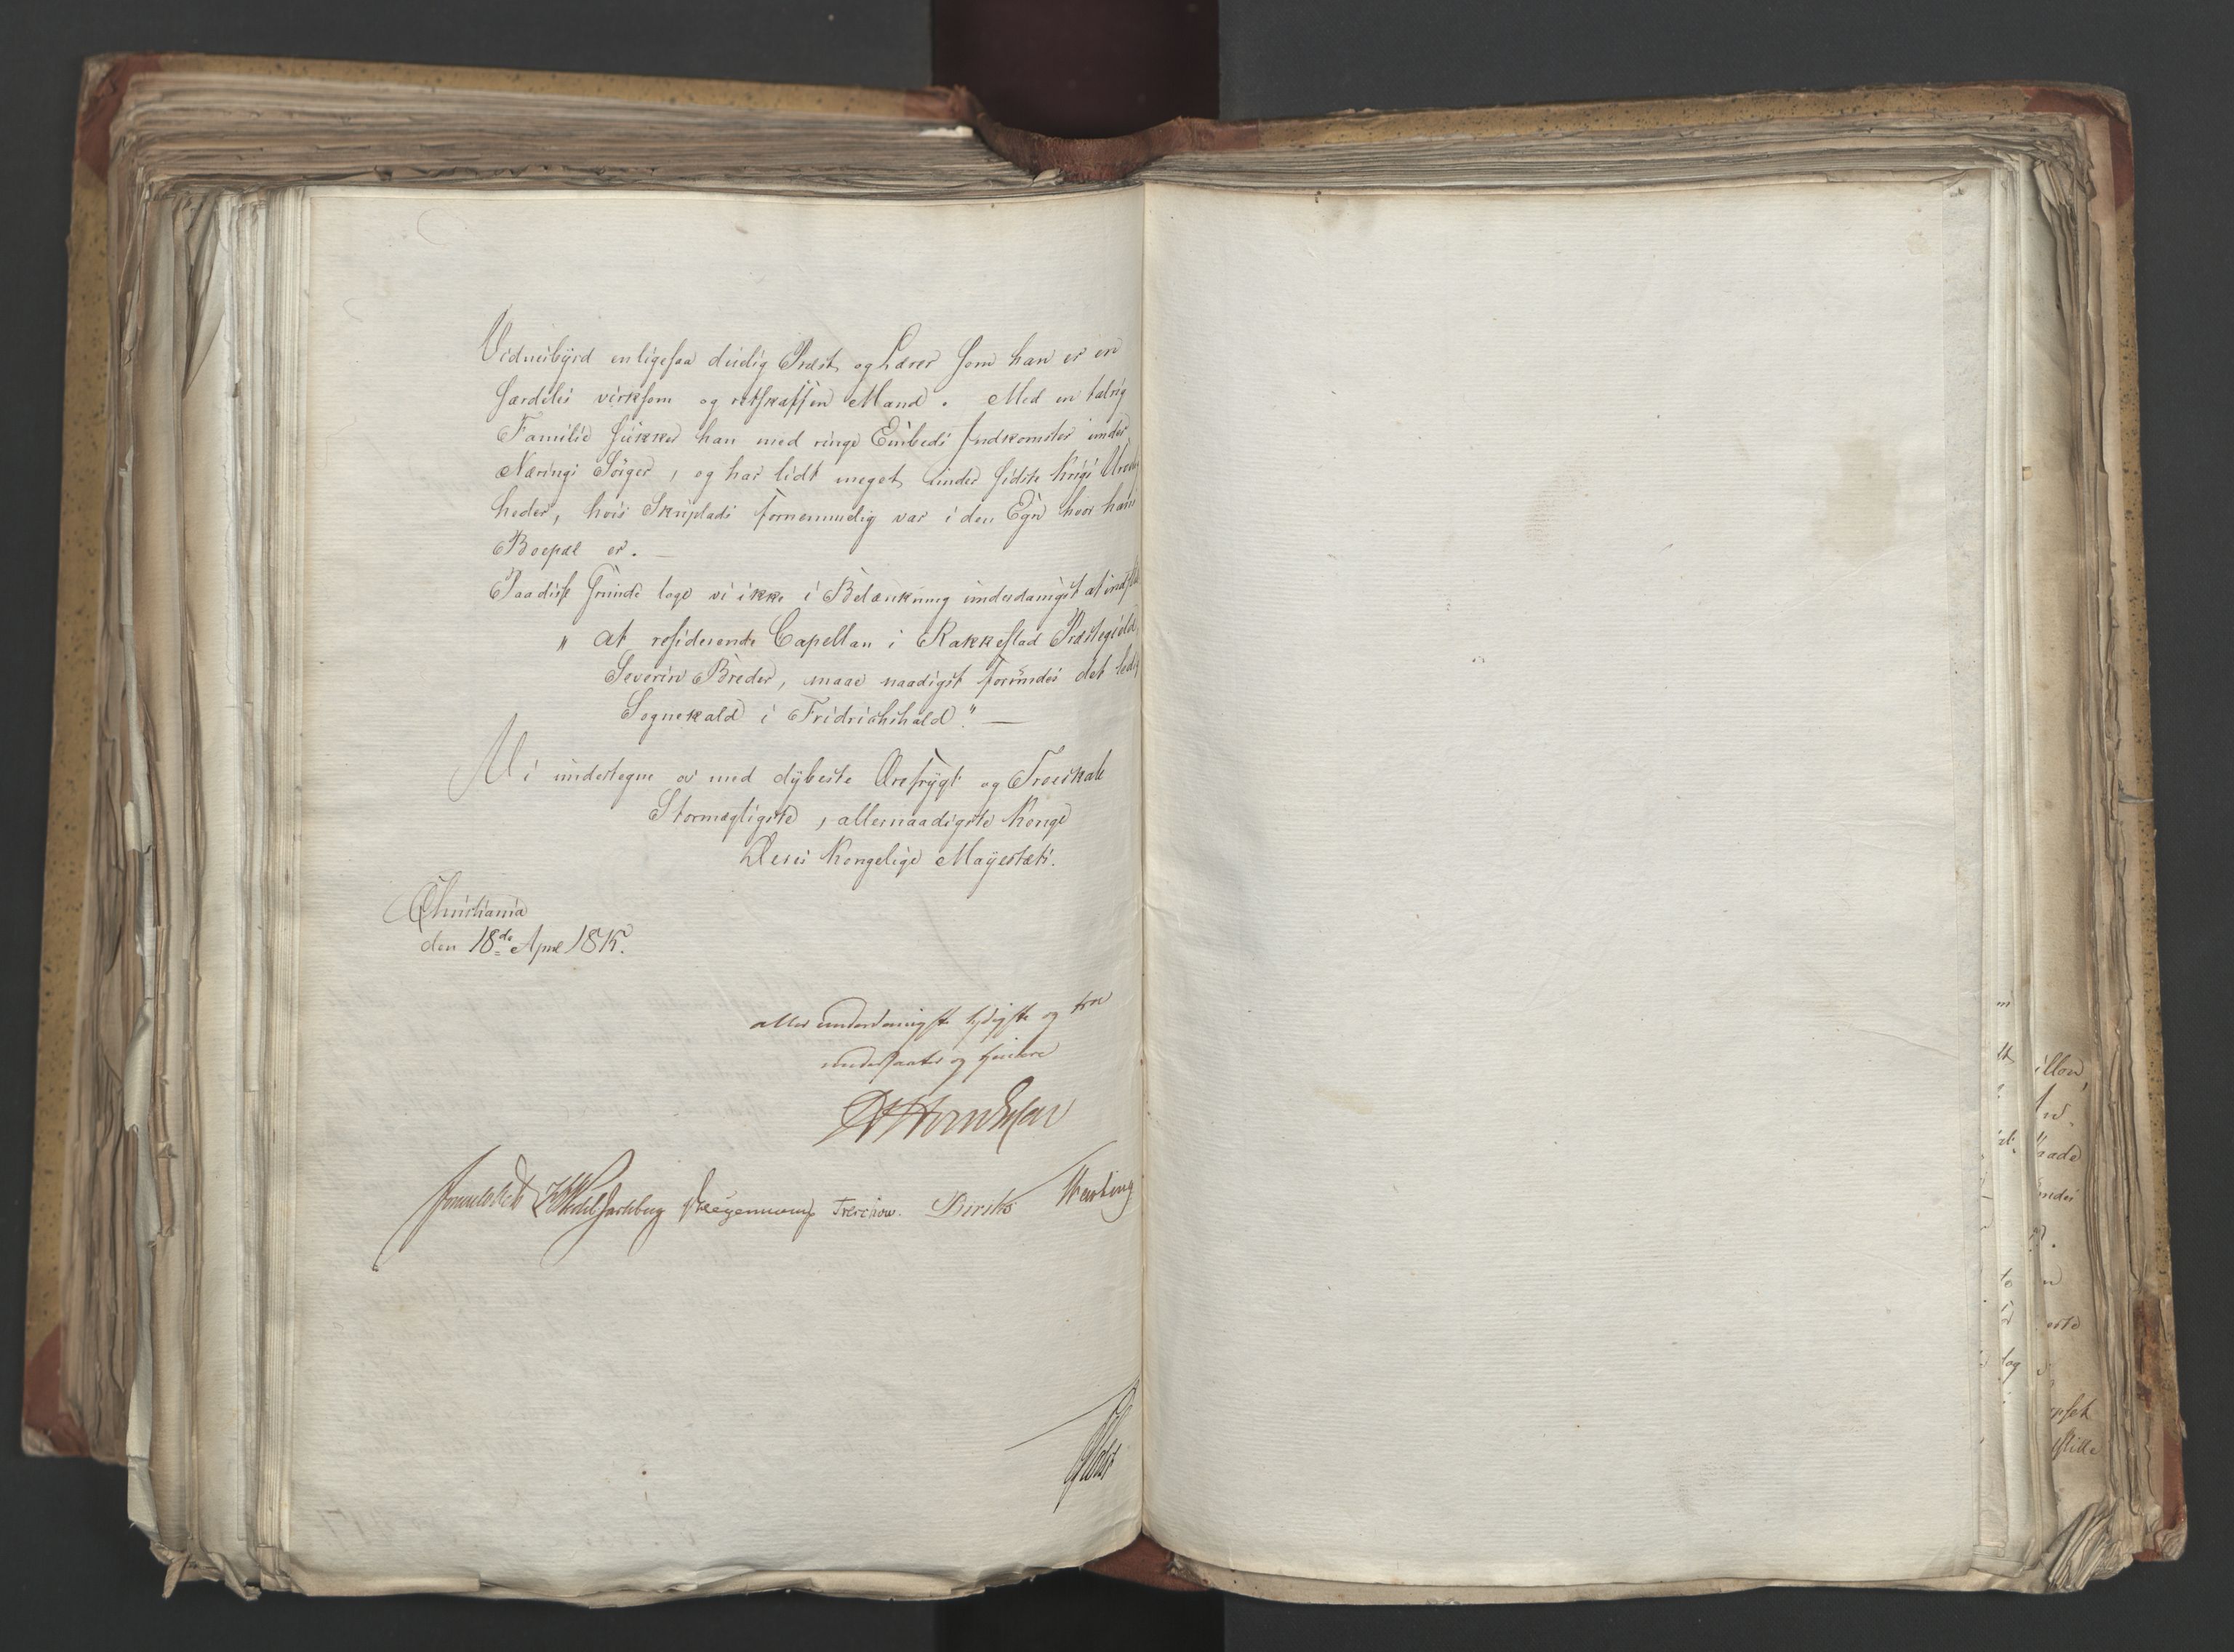 Vidnesbÿrd en ligesaa duelig Præst og Lærer som han er en
særdeles virksom og retskaffen Mand. Med en talrig
Familie sukker han med ringe Embeds Indkomster under
Nærings Sorger, og har lidt meget under sidste Krigs
heder, hvis Skueplads fornemmelig var i den Egn hvor hans
Boepæl er. —
Paa disse Grunde tage vi ikke i Betænkning underdanigst at
" at residerende Capellan i Rakkestad Præstegield,
Severin Breder, maae naadigst forundes det
Sognekald i Fridrichshald." —
Vi undertegne os med dÿbeste Ærefrÿgt og Troeskab
Stormægtigste, allernaadigste Konge
Deres Kongelige Mayestæts.
Christiania
den 18de April 1815.
allerunderdanigste lydigste og troe
undersaatter og tjenere
Sommerhielm Wedel Jarlsberg Krieger Treschow. Diriks Hartvig
illon,
aade